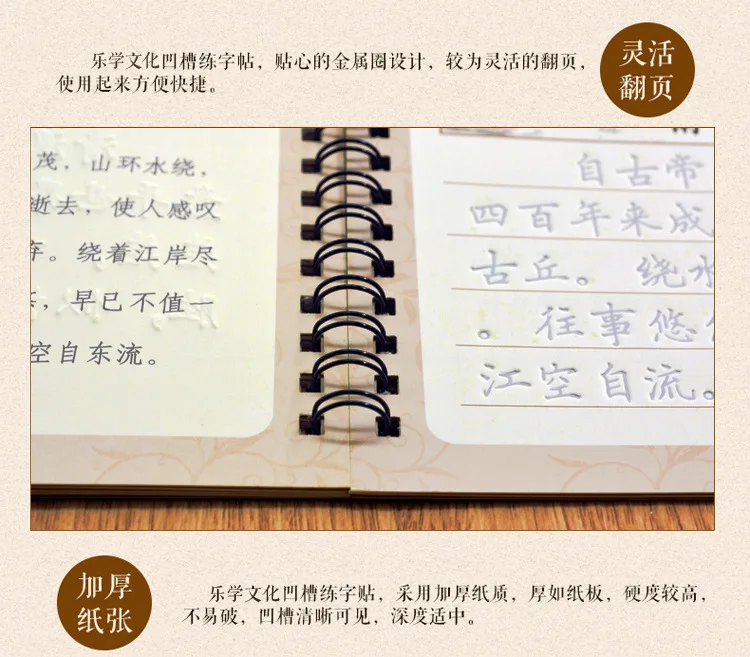 乐学文化凹槽练字帖，贴心的金属圈设计，较为灵活的翻页，
使用起来方便快捷。
灵活
翻页
茂，山环水绕，
逝去，使人感叹
弃。绕着江岸尽
，早已不值一
空自东流。
自古帝
四百年来成
古丘。绕水
。往事悠
江空自流。
加厚
纸张
乐学文化凹槽练字贴，采用加厚纸质，厚如纸板，硬度较高，
不易破，凹槽清晰可见，深度适中。